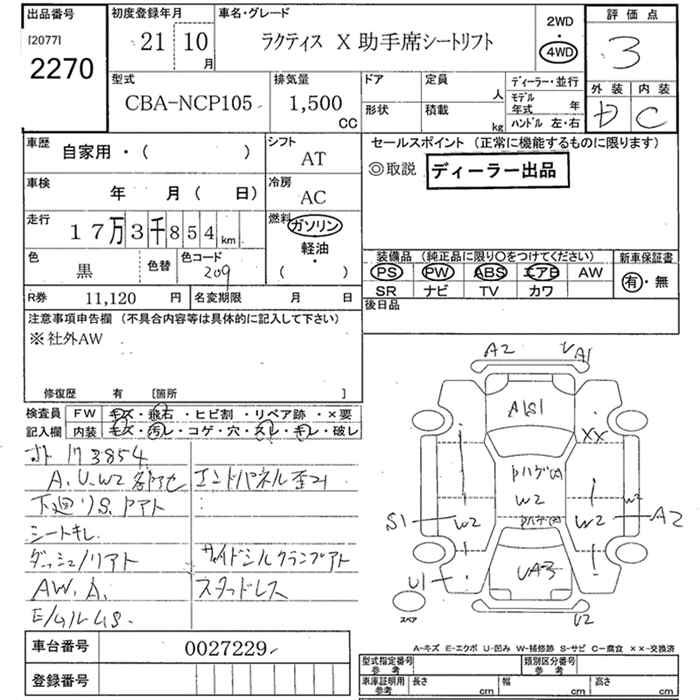 出品番号
[2077]
2270
初度登録年月
21 10 月
車名・グレード
ラクティス X 助手席シートリフト
2WD
・
4WD
評価点
3
外装 内装
C
型式
CBA-NCP105
排気量
1,500
CC
ドア
形状
定員
人
積載
kg
ディーラー・並行
モデル年式 年
ハンドル 左・右
車歴
自家用・( )
シフト
AT
車検
年 月 ( 日)
冷房
AC
走行
17万3千854 km
燃料
ガソリン
軽油・
( )
色
黒
色替
色コード
209
R券 11,120 円
名変期限 月 日
セールスポイント (正常に機能するものに限ります)
◎取説 ディーラー出品
装備品 (純正品に限り○をつけてください)
PS PW ABS エアB AW
SR ナビ TV カワ
新車保証書
有・無
後日品
注意事項申告欄 (不具合内容等は具体的に記入して下さい)
※社外AW
修復歴 有 [箇所 ]
検査員 FW キズ・飛石・ヒビ割・リペア跡・×要
記入欄 内装 キズ・汚レ・コゲ・穴・スレ・キレ・破レ
173854
A.U.W2 エンドパネル歪
下廻りS.アト
シートキレ
ダッシュノリアト サイドシルクランプアト
AW.A. スタッドレス
車台番号 0027229
登録番号
A2 A1
A1S1
XX
W2
W2
S1 W2 W2 A2
UA3
U1
U2
スペア
A-キズ E-エクボ U-凹み W-補修跡 S-サビ C-腐食 ××-交換済
型式指定番号 参考
類別区分番号 参考
車庫証明用 参考
長さ cm
幅 cm
高さ cm